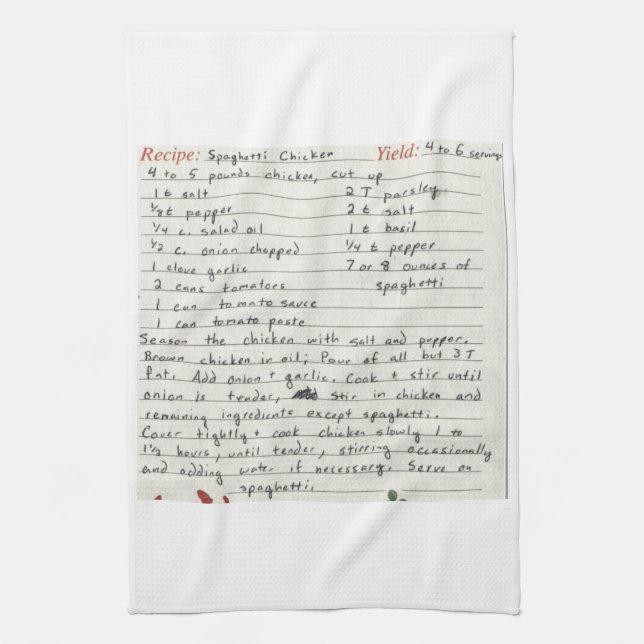 Recipe: Spaghetti Chicken Yield: 4 to 6 servings
4 to 5 pounds chicken, cut up
1 t salt 2 T parsley
⅛ t pepper 2 t salt
¼ c. salad oil 1 t basil
½ c. onion chopped ¼ t pepper
1 clove garlic 7 or 8 ounces of
2 cans tomatoes spaghetti
1 can tomato sauce
1 can tomato paste
Season the chicken with salt and pepper.
Brown chicken in oil; Pour of all but 3 T
fat. Add onion + garlic. Cook + stir until
onion is tender, stir in chicken and
remaining ingredients except spaghetti.
Cover tightly + cook chicken slowly 1 to
1½ hours, until tender, stirring occasionally
and adding water if necessary. Serve on
spaghetti.